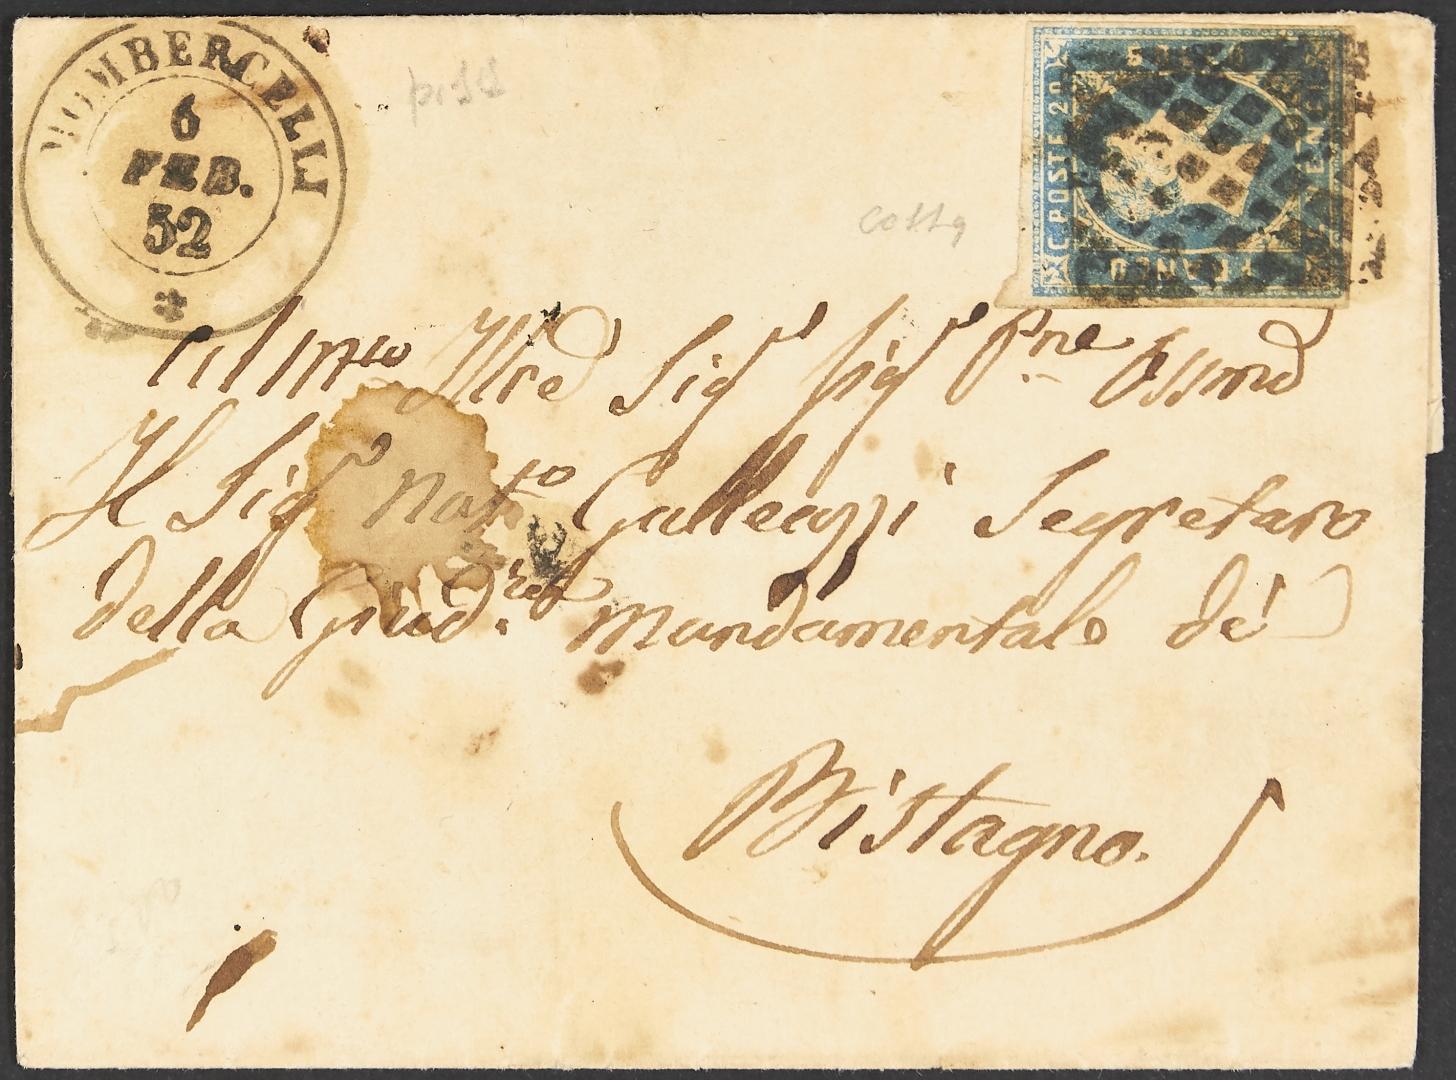 MOMBERCELLI
6
FEB.
52
C. POSTE 20
VENTI
FRANCO
All'Ill.mo Sig.r Sig.r P.ne Ossmo
Il Sig.r Not.o Galleazzi Segretaro
della Giud.ra Mandamentale di
Bistagno.